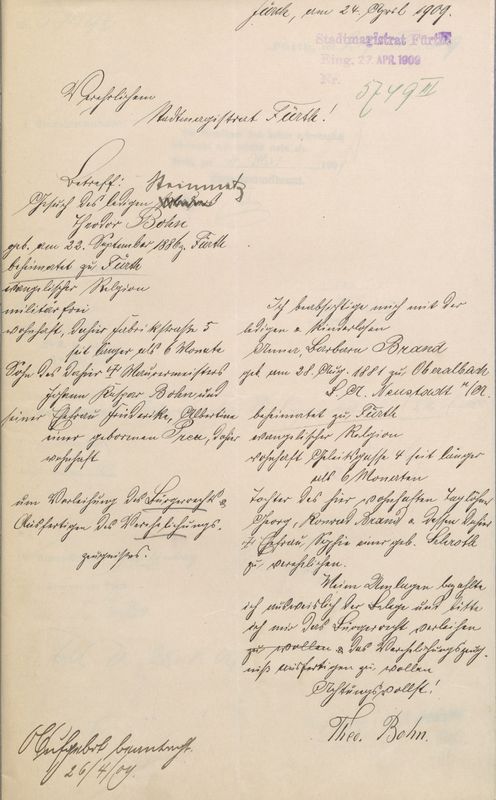 Fürth, am 24. April 1909.
Stadtmagistrat Fürth
Eing. 27. APR. 1909
Nr.
5749 II
Verehrlichem
Stadtmagistrat Fürth!
Betreff: Steinmetz
Gesuch des ledigen
Theodor Bohn
geb. am 22. September 1886 z. Fürth
beheimatet zu Fürth
evangelischer Religion
militärfrei
wohnhaft, dahier Fabrikstraße 5
seit länger als 6 Monate
Sohn des dahier † Maurermeisters
Johann Kaspar Bohn und
seiner Ehefrau Friederike, Albertine
einer gebornen, daher
wohnhaft
um Verleihung des Bürgerrechts &
Ausfertigen des Verehelichungs-
zeugnisses.
Ich beabsichtige mich mit der
ledigen & kinderlosen
Anna, Barbara Brand
geb. am 28. Aug. 1881 zu Oberalbach
B. A. Neustadt a/A.
beheimatet zu Fürth
evangelischer Religion
wohnhaft 4 seit länger
als 6 Monaten
Tochter des hier wohnhaften Taglöhners
Georg, Konrad Brand & dessen dahier
† Ehefrau, Sophie einer geb.
zu verehelichen.
Meine Umlagen bezahlte
ich ausweislich der Belege und bitte
ich mir das Bürgerrecht verleihen
zu wollen & das Verehelichungszeug-
niß ausfertigen zu wollen
Achtungsvollst!
Theo. Bohn.
Aufgebot beantragt.
26/4/09.